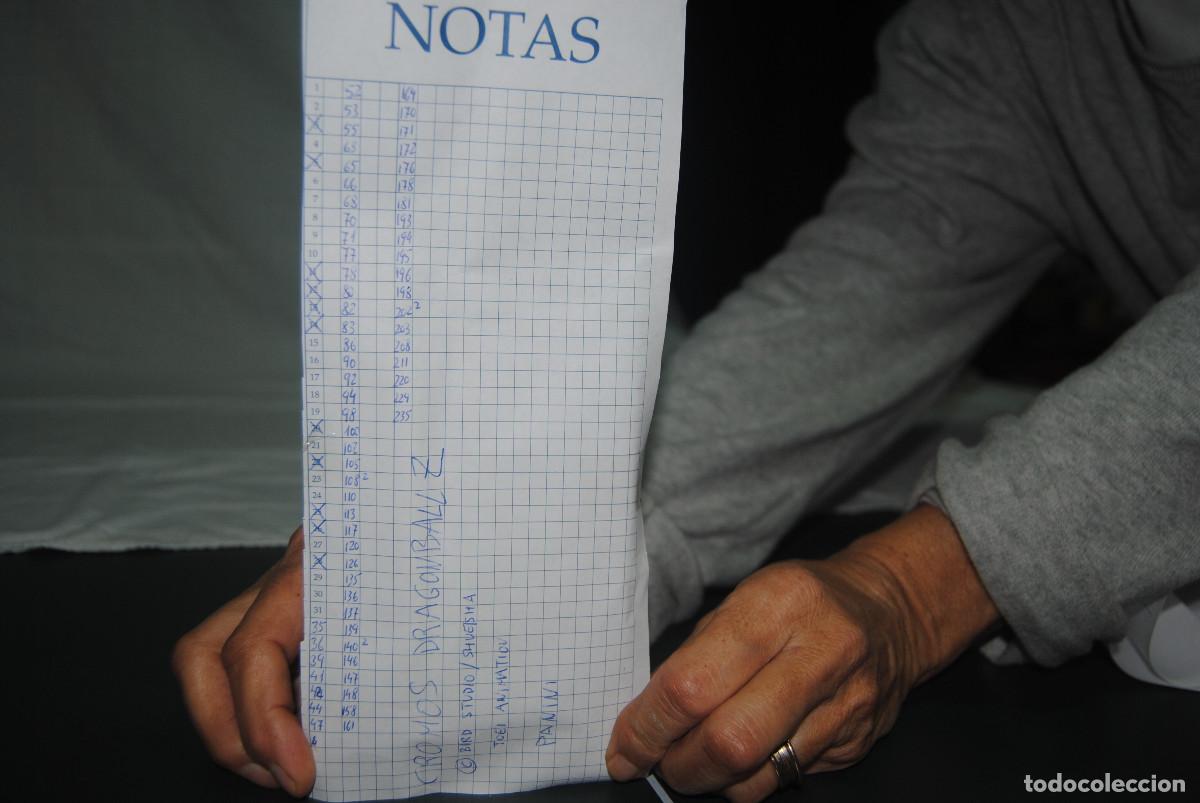 NOTAS
1 52 169
2 53 170
3 55 171
4 63 172
5 65 176
6 66 178
7 68 181
8 70 193
9 71 194
10 77 195
11 78 196
12 80 198
13 82 202²
14 83 203
15 86 208
16 90 211
17 92 220
18 94 229
19 98 235
20 100
21 102
22 105
23 108²
24 110
113
117
27 120
126
29 135
30 136
31 137
35 139
36 140²
39 146
41 147
42 148
44 158
47 161
CROMOS DRAGON BALL Z
© BIRD STUDIO / SHUEISHA
TOEI ANIMATION
PANINI
todocoleccion